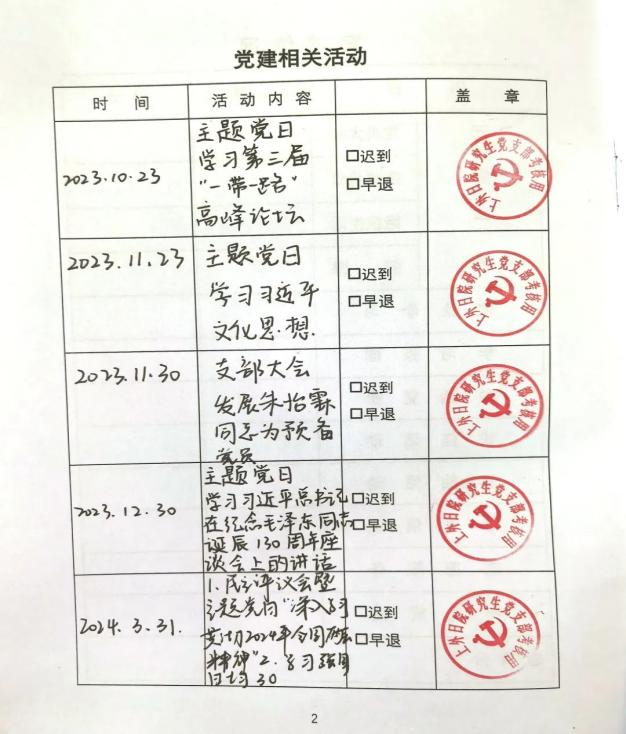 党建相关活动
时 间 活动内容 盖 章
2023.10.23
主题党日
学习第三届
“一带一路”
高峰论坛
□迟到
□早退
上外日院研究生党支部考核用
2023.11.23
主题党日
学习习近平
文化思想.
□迟到
□早退
上外日院研究生党支部考核用
2023.11.30
支部大会
发展朱怡霖
同志为预备
党员
□迟到
□早退
上外日院研究生党支部考核用
2023.12.30
主题党日
学习习近平总书记
在纪念毛泽东同志
诞辰130周年座
谈会上的讲话
□迟到
□早退
上外日院研究生党支部考核用
2024.3.31.
1.民主评议会暨
主题党日“深入学习
2024年全国两会
精神”2.学习强国
日均30
□迟到
□早退
上外日院研究生党支部考核用
2